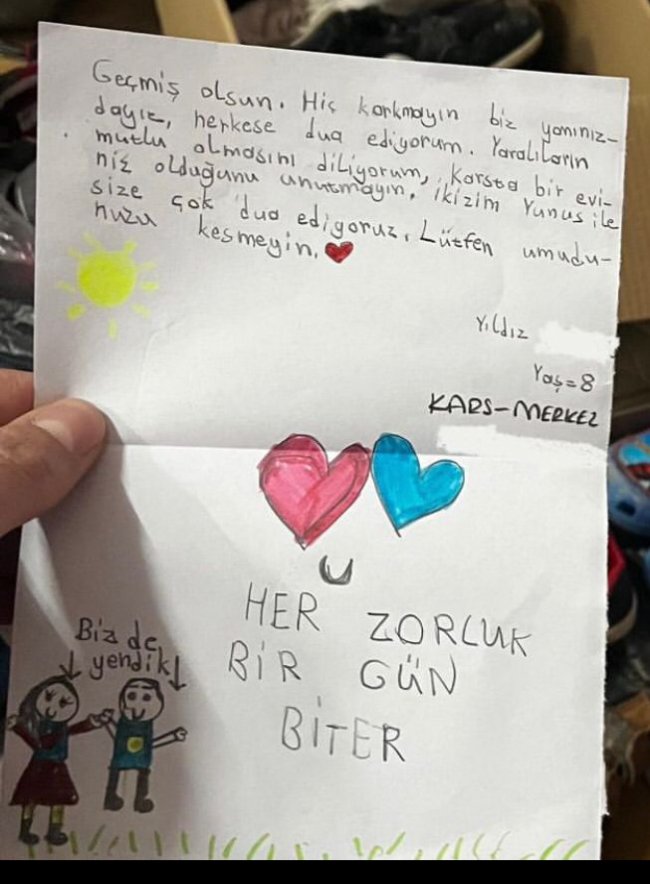 Geçmiş olsun. Hiç korkmayın biz yanınız-
dayız, herkese dua ediyorum. Yaralıların
mutlu olmasını diliyorum, karsta bir evi-
niz olduğunu unutmayın, ikizim Yunus ile
size çok dua ediyoruz. Lütfen umudu-
nuzu kesmeyin.
Yıldız
Yaş=8
KARS-MERKEZ
HER ZORLUK
BİR GÜN
BİTER
Biz de
yendik